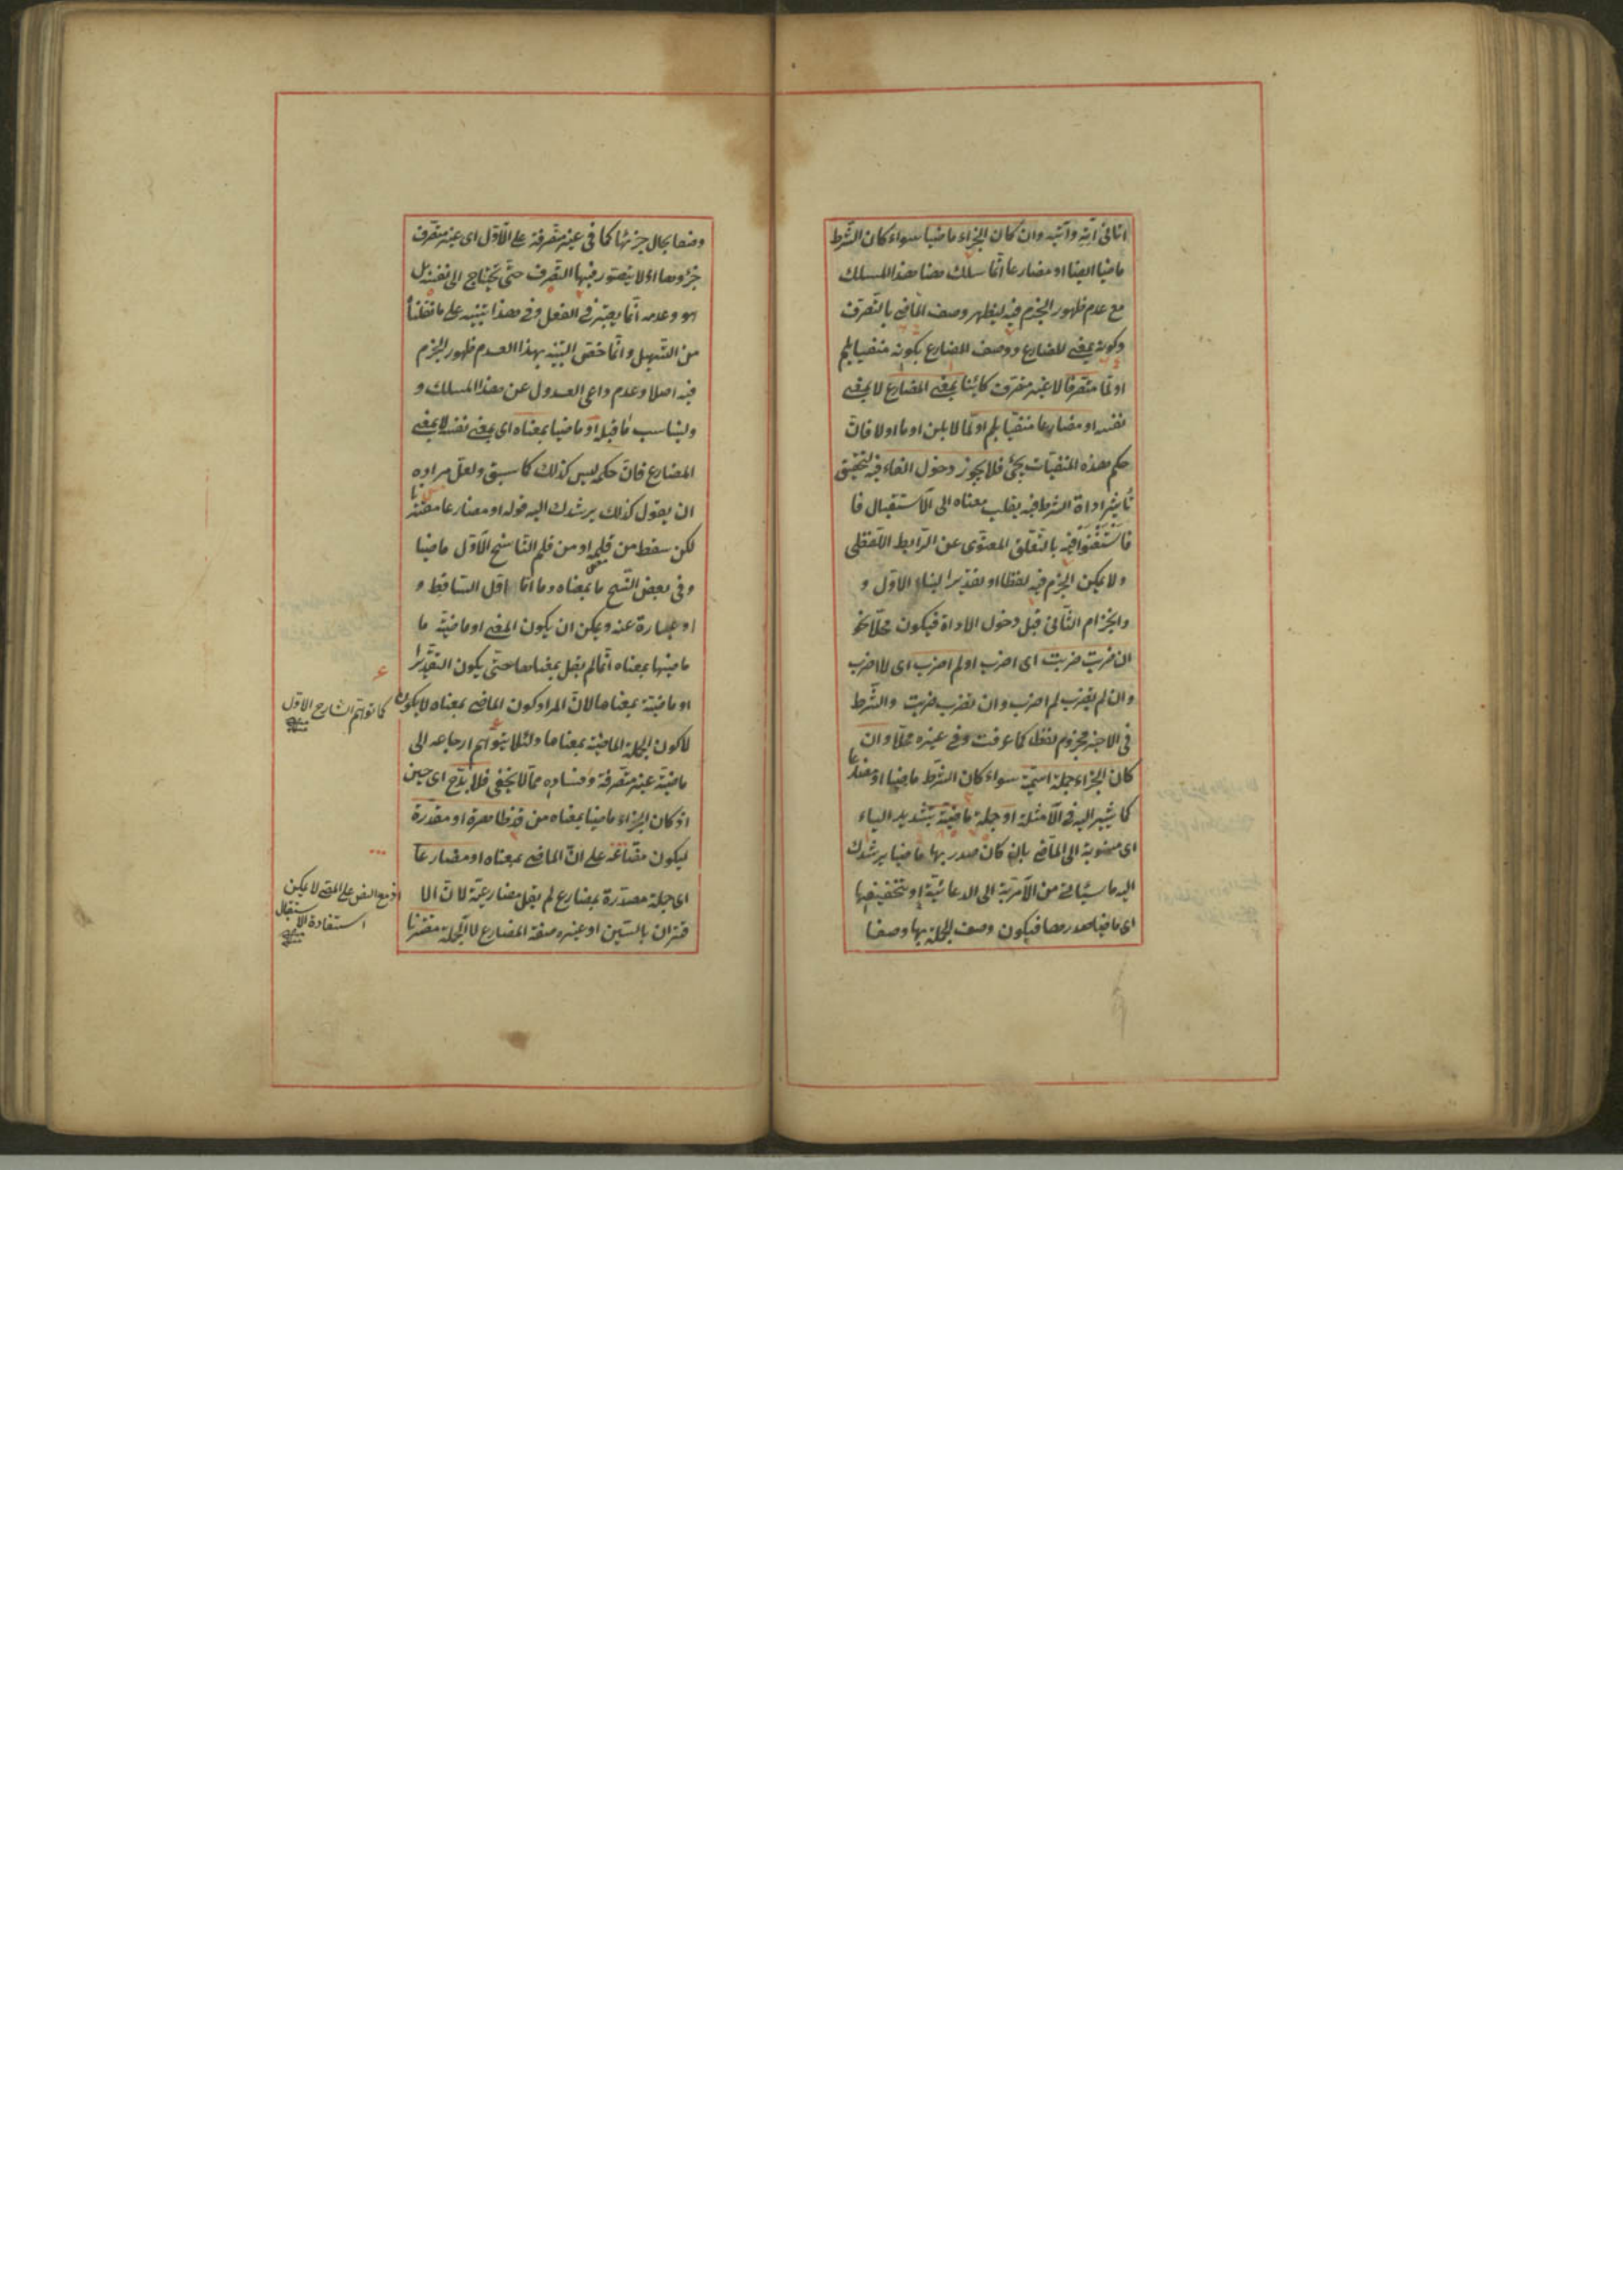 اتانى آته وآتيه وان كان الجزاء ماضيا سواء كان الشرط
ماضيا ايضا او مضارعا انما سلك هنا هذا المسلك
مع عدم ظهور الجزم فيه ليظهر وصف الماضى بالتصرف
وكونه بمعنى المضارع ووصف المضارع بكونه منفيا بلم
او لما متصرفا لا غير متصرف كائنا بمعنى المضارع لا بمعنى
نفسه او مضارعا منفيا بلم او لما لا بلن او ما او لا فان
حكم هذه المنفيات يجئ فلا يجوز دخول الفاء فيه لتحقيق
تأثير اداة الشرط فيه بقلب معناه الى الاستقبال فا
فاستغنوا فيه بالتعلق المعنوى عن الرابط اللفظى
ولا يمكن الجزم فيه لفظا او تقديرا لبناء الاول و
وانجزام الثانى قبل دخول الاداة فيكون محلا نحو
ان ضربت ضربت اى اضرب او لم اضرب اى لا اضرب
وان لم يضرب لم اضرب وان تضرب ضربت والشرط
فى الاخير مجزوم لفظا كما عرفت وفى غيره محلا وان
كان الجزاء جملة اسمية سواء كان الشرط ماضيا او مضارعا
كما يشير اليه فى الامثلة او جملة ماضية بتشديد الياء
اى منسوبة الى الماضى بان كان صدر بها ماضيا يرشدك
اليه ما سيأتى من الامرية الى الدعائية او بتخفيفها
اى ماضيا صدرها فيكون وصف الجملة بها وصفا
وصفا بحال جزئها كما فى غير متصرفة على الاول اى غير متصرف
جزؤها اذ لا يتصور فيها التصرف حتى يحتاج الى تقييد بل
هو وعدمه انما يعتبر فى الفعل وفى هذا تنبيه على ما نقلنا
من التسهيل وانما خص التنبيه بهذا العدم ظهور الجزم
فيه اصلا وعدم داعى العدول عن هذا المسلك و
وليناسب ما قبله او ماضيا بمعناه اى بمعنى نفسه لا بمعنى
المضارع فان حكمه ليس كذلك كما سبق ولعل مراده
ان يقول كذلك يرشدك اليه قوله او مضارعا مقترنا
لكن سقط من قلمه او من قلم الناسخ الاول ماضيا
وفى بعض النسخ ما بمعناه وما اما اقل الساقط و
او عبارة عنه ويمكن ان يكون المعنى او ماضية ما
ماضيها بمعناه انما لم يقل بمعناها حتى يكون التقدير
او ماضية بمعناها لان المراد كون الماضى بمعناه لا بكون
لا كون الجملة الماضية بمعناها ولئلا يتوهم ارجاعه الى
ماضية غير متصرفة وفساده مما لا يخفى فلا بد ح اى حين
اذ كان الجزاء ماضيا بمعناه من قد ظاهرة او مقدرة
ليكون علی ان الماضى بمعناه او مضارعا
اى جملة مصدرة بمضارع لم يقل مضارعية لان الا
قتران بالسين او غيره صفة المضارع لا الجملة مقترنا
كما توهم الشارح الاول
منه
اذ مع النص على المضى لا يمكن
استفادة الاستقبال
منه